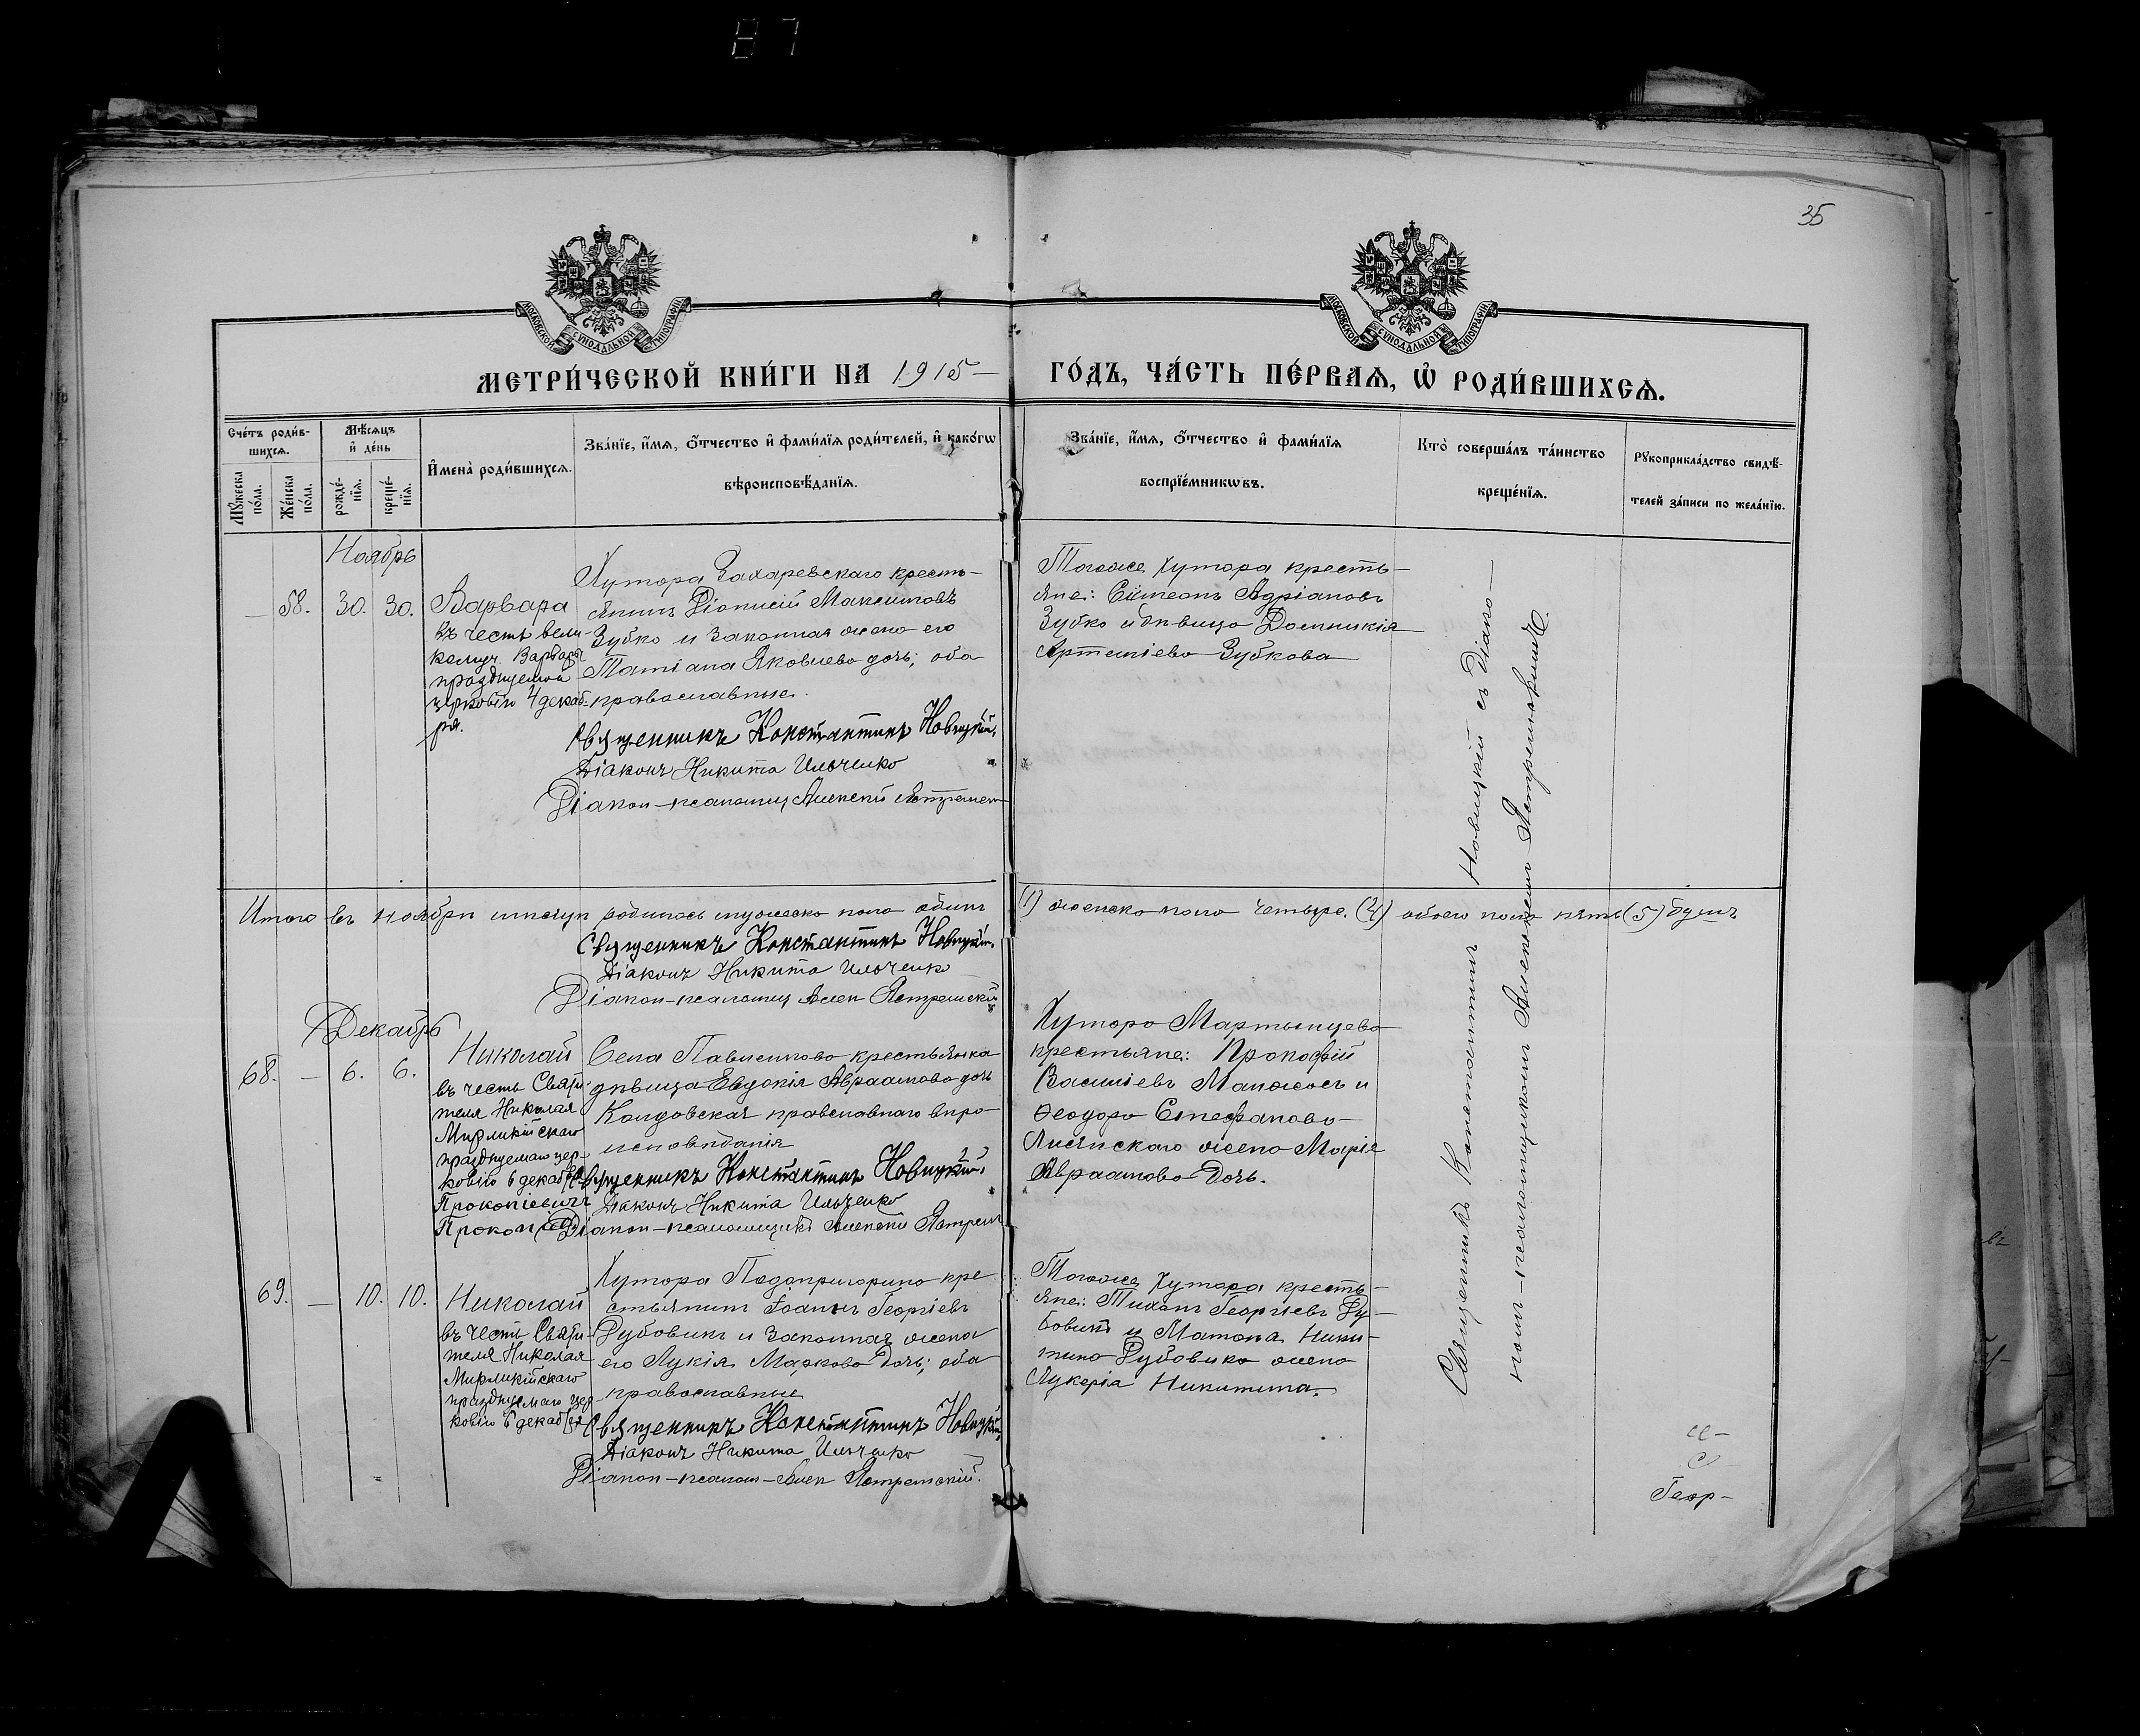 87
35
МОСКОВСКОЙ СУНОДАЛЬНОЙ ТИПОГРАФІИ
МОСКОВСКОЙ СУНОДАЛЬНОЙ ТИПОГРАФІИ
МЕТРИ́ЧЕСКОЙ КНИ́ГИ НА 1915 — ГО́ДЪ, ЧА́СТЬ ПЕ́РВАѦ, Ѡ҆ РОДИ́ВШИХСѦ.
Сче́тъ роди́в-
шихсѧ.
Мꙋ́жеска по́ла.
Же́нска по́ла.
Мѣ́сѧцъ
и҆ де́нь
рожде́-
нїѧ.
креще́-
нїѧ.
И҆мена̀ роди́вшихсѧ.
Зва́нїе, и҆́мѧ, ѻ҆́тчество и҆ фами́лїѧ роди́телей, и҆ како́гѡ
вѣроисповѣ́данїѧ.
Зва́нїе, и҆́мѧ, ѻ҆́тчество и҆ фами́лїѧ
воспрїе́мникѡвъ.
Кто̀ соверша́лъ та́инство
креще́нїѧ.
Рꙋкоприкла́дство свидѣ́-
телей за́писи по жела́нїю.
Ноябрь
— 58. 30. 30.
Варвара
въ честь вели-
комуч. Варвары
празднуемой
церковію 4 декаб-
ря.
Хутора Захаревскаго кресть-
янинъ Діонисій Максимовъ
Зубко и законная жена его
Татіана Яковлева дочь; оба
православные.
Священникъ Константинъ Новицкій.
Діаконъ Никита Ильченко
Діакон-псаломщ Алексій Ястремск
Тогоже хутора кресть-
яне: Симеонъ Адріановъ
Зубко и дѣвица Домникія
Артеміева Зубкова
Священникъ Константинъ Новицкій съ Діако-
номъ-псаломщикомъ Алексіемъ Ястремскимъ.
Итого въ ноябрѣ мѣсяцѣ родилось мужеска пола одинъ (1) женска пола четыре (4) обоего пола пять (5) душъ
Священникъ Константинъ Новицкій.
Діаконъ Никита Ильченко
Діакон-псаломщ Алек Ястремскій
Декабрь
68. — 6. 6.
Николай
въ честь Святи-
теля Николая
Мирликійскаго
празднуемаго цер-
ковію 6 декабря
Прокопіевичъ
Села Павленково крестьянка
дѣвица Евдокія Авраамова дочь
православнаго вѣро-
исповѣданія
Священникъ Константинъ Новицкій.
Діаконъ Никита Ильченко
Діакон-псаломщикъ Алексій Ястрем
Хутора Мартынцева
крестьяне: Прокофій
Василіевъ Манжосъ и
Ѳеодора Стефанова
жена Марія
Авраамова дочь.
69. — 10. 10.
Николай
въ честь Святи-
теля Николая
Мирликійскаго
празднуемаго цер-
ковію 6 декабря
Хутора Подопригорина кре-
стьянинъ Іоаннъ Георгіевъ
Дубовикъ и законная жена
его Лукія Маркова дочь; оба
православные
Священникъ Константинъ Новицкій.
Діаконъ Никита Ильченко
Діакон-псалом-Алек Ястремскій.
Тогоже хутора кресть-
яне: Тихонъ Георгіевъ Ду-
бовикъ и
Дубовика жена
Лукерія Никитина.
Геор-